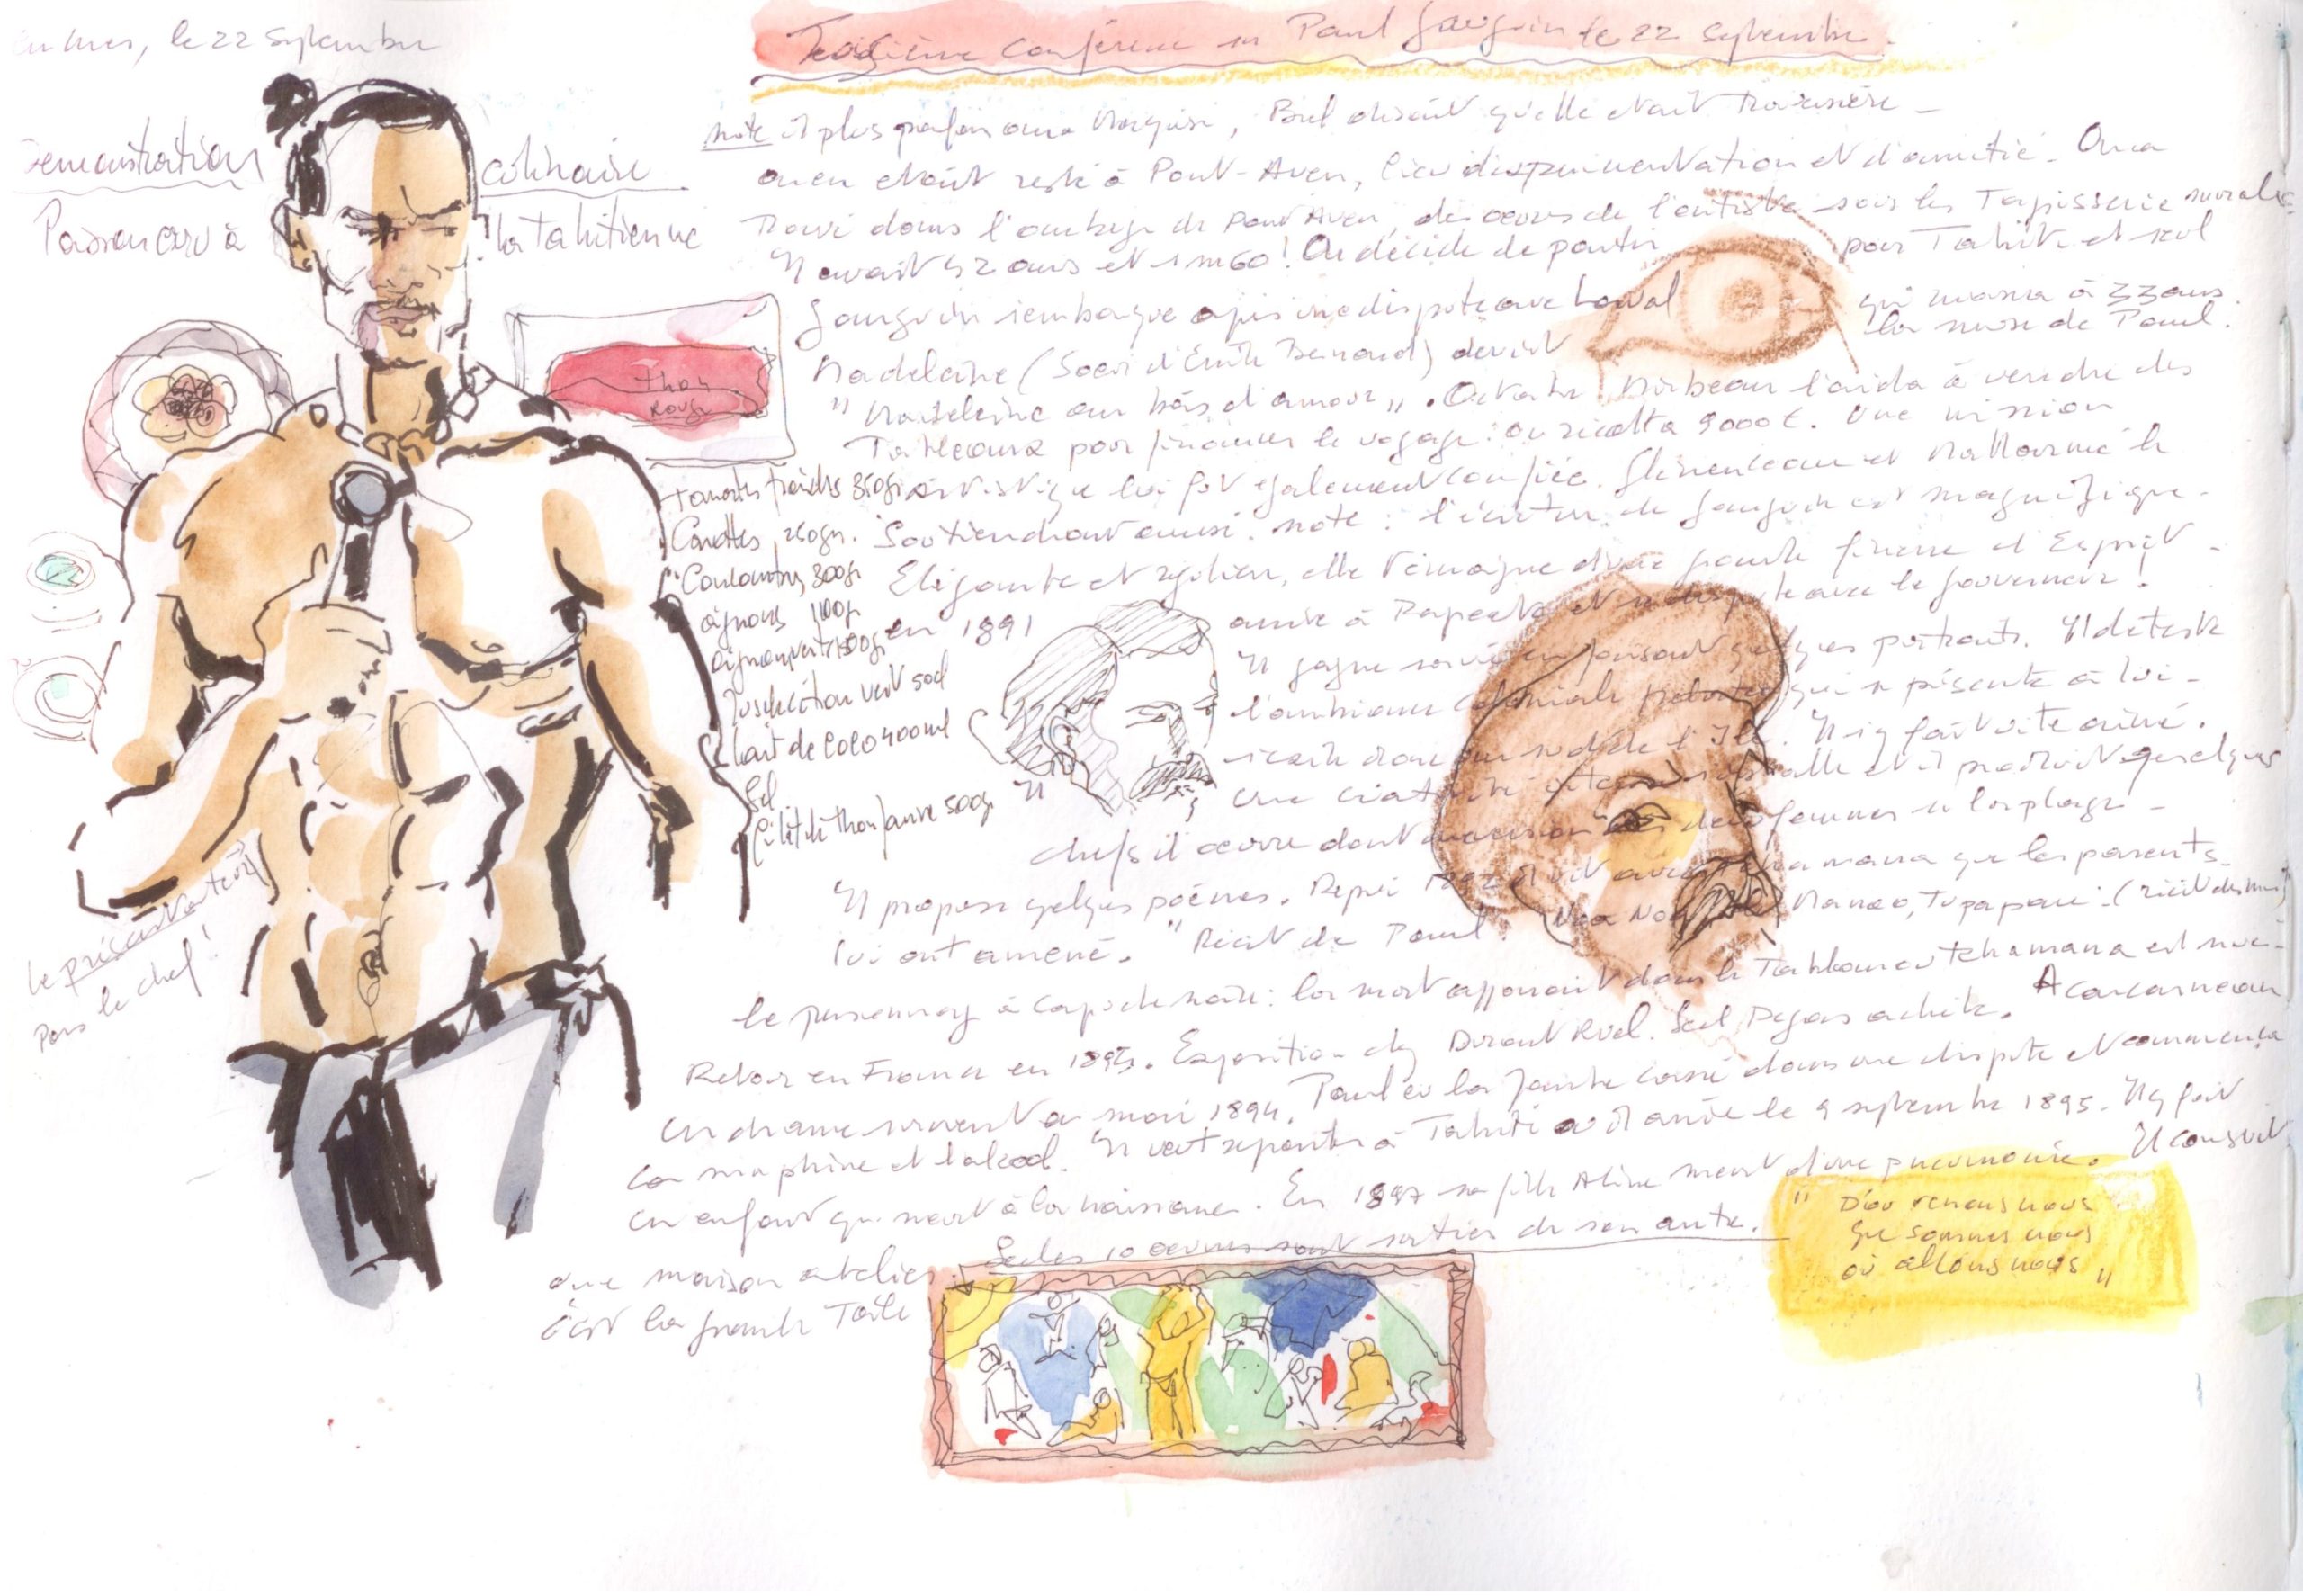 le 22 Septembre
Demonstration culinaire
Poisson cru à la tahitienne
Thon
Rouge
Tomates fraîches 350gr
Carottes 250gr.
Concombres 300gr
oignons 100gr
oignons verts 100gr
Jus de citron vert 50cl
Lait de coco 400ml
Sel
Filet de thon jaune 500gr
le présentateur
pour le chef!
Troisième conférence sur Paul Gauguin le 22 Septembre.
note il plus parfois aux Marquises, Brel disait qu'elle était traversière
on en était resté à Pont-Aven, lieu d'experimentation et d'amitié. On a
Trouvé dans l'auberge de Pont Aven, des œuvres de l'artiste sous les Tapisseries murales
Il avait 42 ans et 1m60! On décide de partir pour Tahiti et seul
Gauguin s'embarque après une dispute avec Laval qui mourra à 33 ans.
la muse de Paul.
Madeleine (Sœur d'Emile Bernard) devint
"Madeleine au bois d'amour". Octave Mirbeau l'aida à vendre des
Tableaux pour financer le voyage: on récolta 9000 €. Une mission
artistique lui fut également confiée. Clémenceau et Mallarmé le
Soutiendront aussi. note: l'écriture de Gauguin est magnifique.
Elégante et régulière, elle témoigne d'une grande finesse d'Esprit
en 1891 arrivé à Papeete et se dispute avec le gouverneur!
Il gagne sa vie en faisant quelques portraits. Il déteste
l'ambiance coloniale qui se présente à lui.
s'écarte donc au sud de l'Ile. Il s'y fait vite aimé.
une créativité intense s'installe et il produit quelques
chefs d'œuvre dont deux femmes sur la plage
Il propose quelques poèmes. que les parents
lui ont amené. "Récit de Paul. Noa Noa Manao, Tupapau. (récit des
le personnage à capuche noire: la mort apparaît dans le Tableau où tehamana est nue.
Retour en France en 1893. Exposition chez Durand Ruel. Seul Degas achète. A concarneau
un drame survient en mai 1894. Paul eu la jambe cassé dans une dispute et commença
la morphine et l'alcool. Il veut repartir à Tahiti où il arrive le 9 septembre 1895. Il y fait
un enfant qui meurt à la naissance. En 1897 sa fille Aline meurt d'une pneumonie. Il construit
une maison atelier. Seules 10 œuvres sont sorties de son antre.
c'est la grande Toile
"D'où venons nous
que sommes nous
où allons nous"